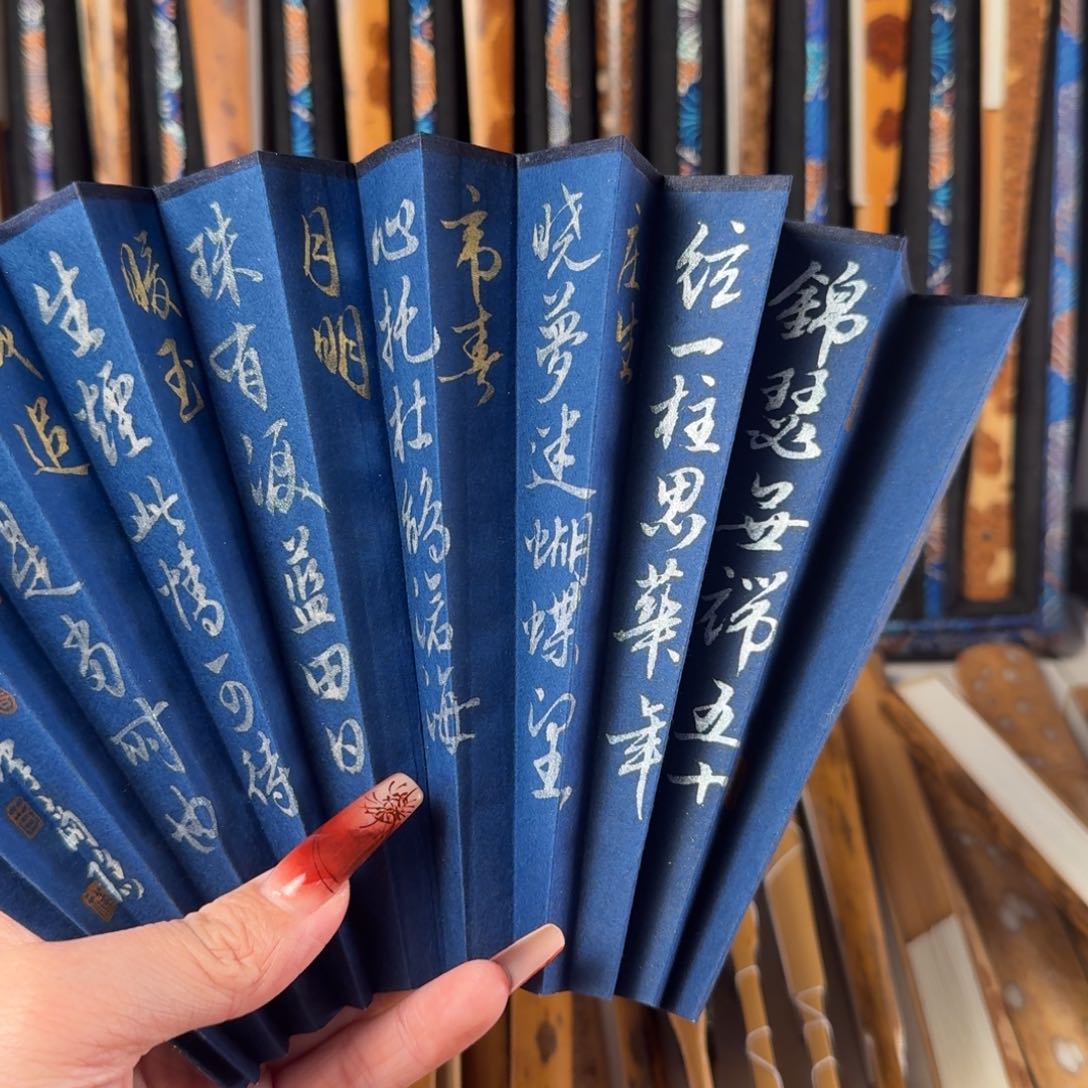 錦瑟無端五十
弦一柱思華年
莊生
晓夢迷蝴蝶望
帝春
心托杜鵑滄海
月明
珠有淚蓝田日
暖玉
生煙此情可待
成追
是當時已